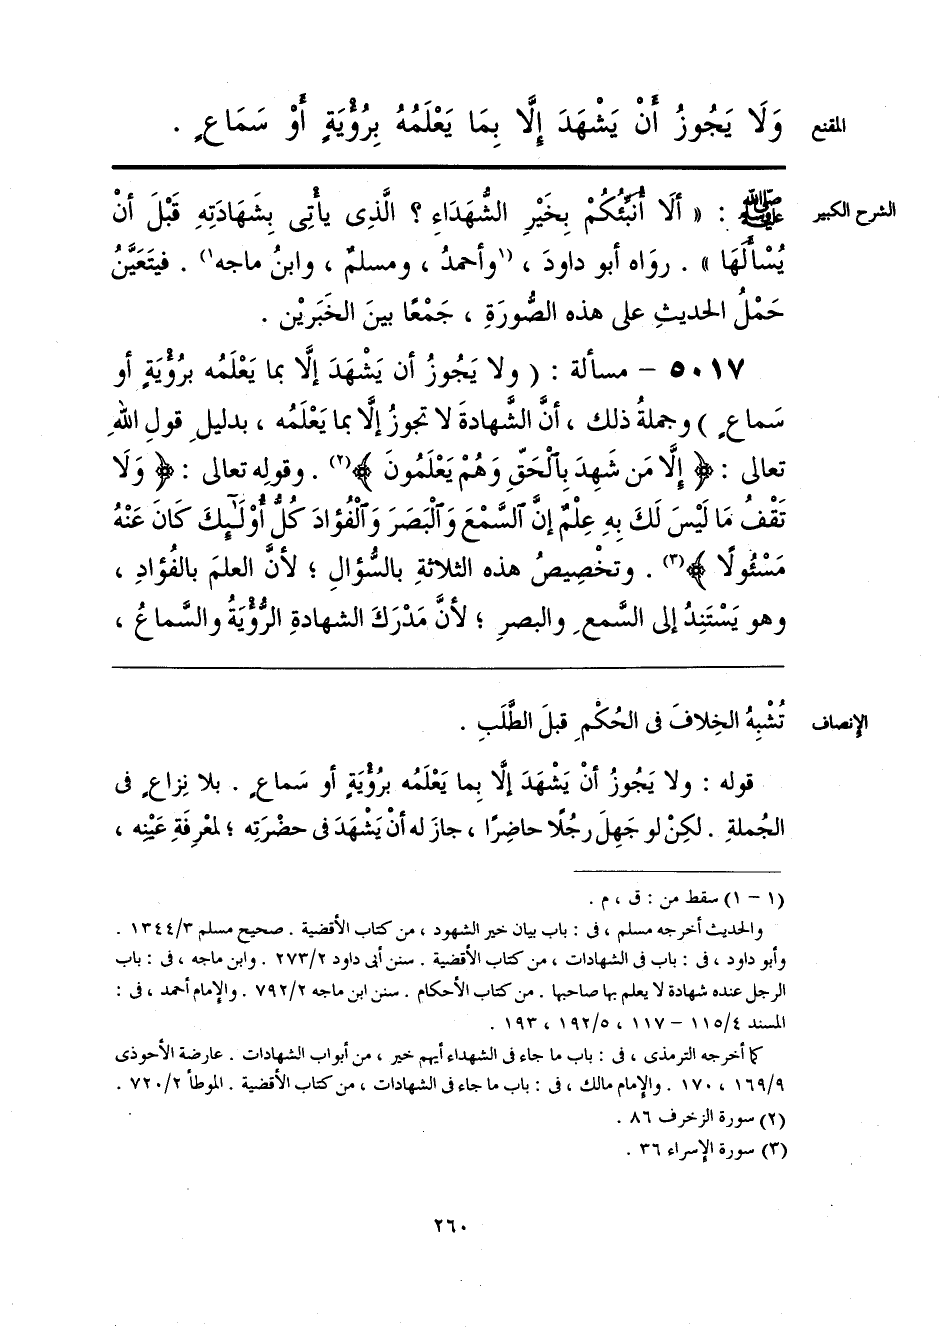 المقنع وَلَا يَجُوزُ أَنْ يَشْهَدَ إِلَّا بِمَا يَعْلَمُهُ بِرُؤْيَةٍ أَوْ سَمَاعٍ .
الشرح الكبير ﷺ : « أَلَا أُنَبِّئُكُمْ بِخَيْرِ الشُّهَدَاءِ ؟ الَّذِى يأْتِى بِشَهَادَتِهِ قَبْلَ أنْ
يُسْأَلَهَا » . روَاه أبو داودَ ، (١وأحمدُ ، ومسلمٌ ، وابنُ ماجه١) . فيَتَعَيَّنُ
حَمْلُ الحديثِ على هذه الصُّورَةِ ، جَمْعًا بينَ الخَبَرَيْن .
٥٠١٧ – مسألة : ( ولا يَجُوزُ أن يَشْهَدَ إلَّا بما يَعْلَمُه برُؤْيَةٍ أو
سَماعٍ ) وجملةُ ذلك ، أنَّ الشَّهادةَ لا تجوزُ إلَّا بما يَعْلَمُه ، بدليلِ قولِ اللهِ
تعالى : ﴿ إِلَّا مَن شَهِدَ بِٱلْحَقِّ وَهُمْ يَعْلَمُونَ ﴾(٢) . وقولِه تعالى : ﴿ وَلَا
تَقْفُ مَا لَيْسَ لَكَ بِهِ عِلْمٌ إِنَّ ٱلسَّمْعَ وَٱلْبَصَرَ وَٱلْفُؤَادَ كُلُّ أُوْلَٰٓئِكَ كَانَ عَنْهُ
مَسْئُولًا ﴾(٣) . وتخْصِيصُ هذه الثلاثةِ بالسُّؤالِ ؛ لأنَّ العلمَ بالفُؤادِ ،
وهو يَسْتَنِدُ إلى السَّمعِ والبصرِ ؛ لأنَّ مَدْرَكَ الشهادةِ الرُّؤْيَةُ والسَّماعُ ،
الإنصاف تُشْبِهُ الخِلافَ فى الحُكْمِ قبلَ الطَّلَبِ .
قوله : ولا يَجُوزُ أنْ يَشْهَدَ إلَّا بِما يَعْلَمُه برُؤْيَةٍ أو سَماعٍ . بلا نِزاعٍ فى
الجُملةِ . لكِنْ لو جَهِلَ رجُلًا حاضِرًا ، جازَ له أنْ يَشْهَدَ فى حضْرَتِه ؛ لمعْرِفَةِ عَيْنِه ،
(١ – ١) سقط من : ق ، م .
والحديث أخرجه مسلم ، فى : باب بيان خير الشهود ، من كتاب الأقضية . صحيح مسلم ١٣٤٤/٣ .
وأبو داود ، فى : باب فى الشهادات ، من كتاب الأقضية . سنن أبى داود ٢٧٣/٢ . وابن ماجه ، فى : باب
الرجل عنده شهادة لا يعلم بها صاحبها . من كتاب الأحكام . سنن ابن ماجه ٧٩٢/٢ . والإمام أحمد ، فى :
المسند ١١٥/٤ – ١١٧ ، ١٩٢/٥ ، ١٩٣ .
كما أخرجه الترمذى ، فى : باب ما جاء فى الشهداء أيهم خير ، من أبواب الشهادات . عارضة الأحوذى
١٦٩/٩ ، ١٧٠ . والإمام مالك ، فى : باب ما جاء فى الشهادات ، من كتاب الأقضية . الموطأ ٧٢٠/٢ .
(٢) سورة الزخرف ٨٦ .
(٣) سورة الإسراء ٣٦ .
٢٦٠